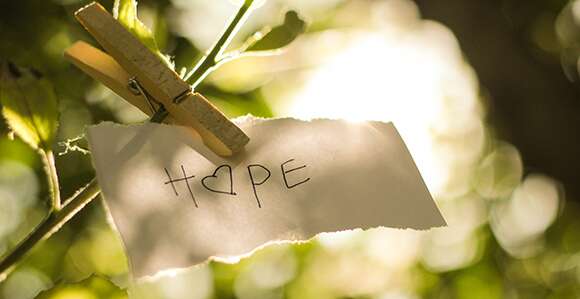 H♡PE